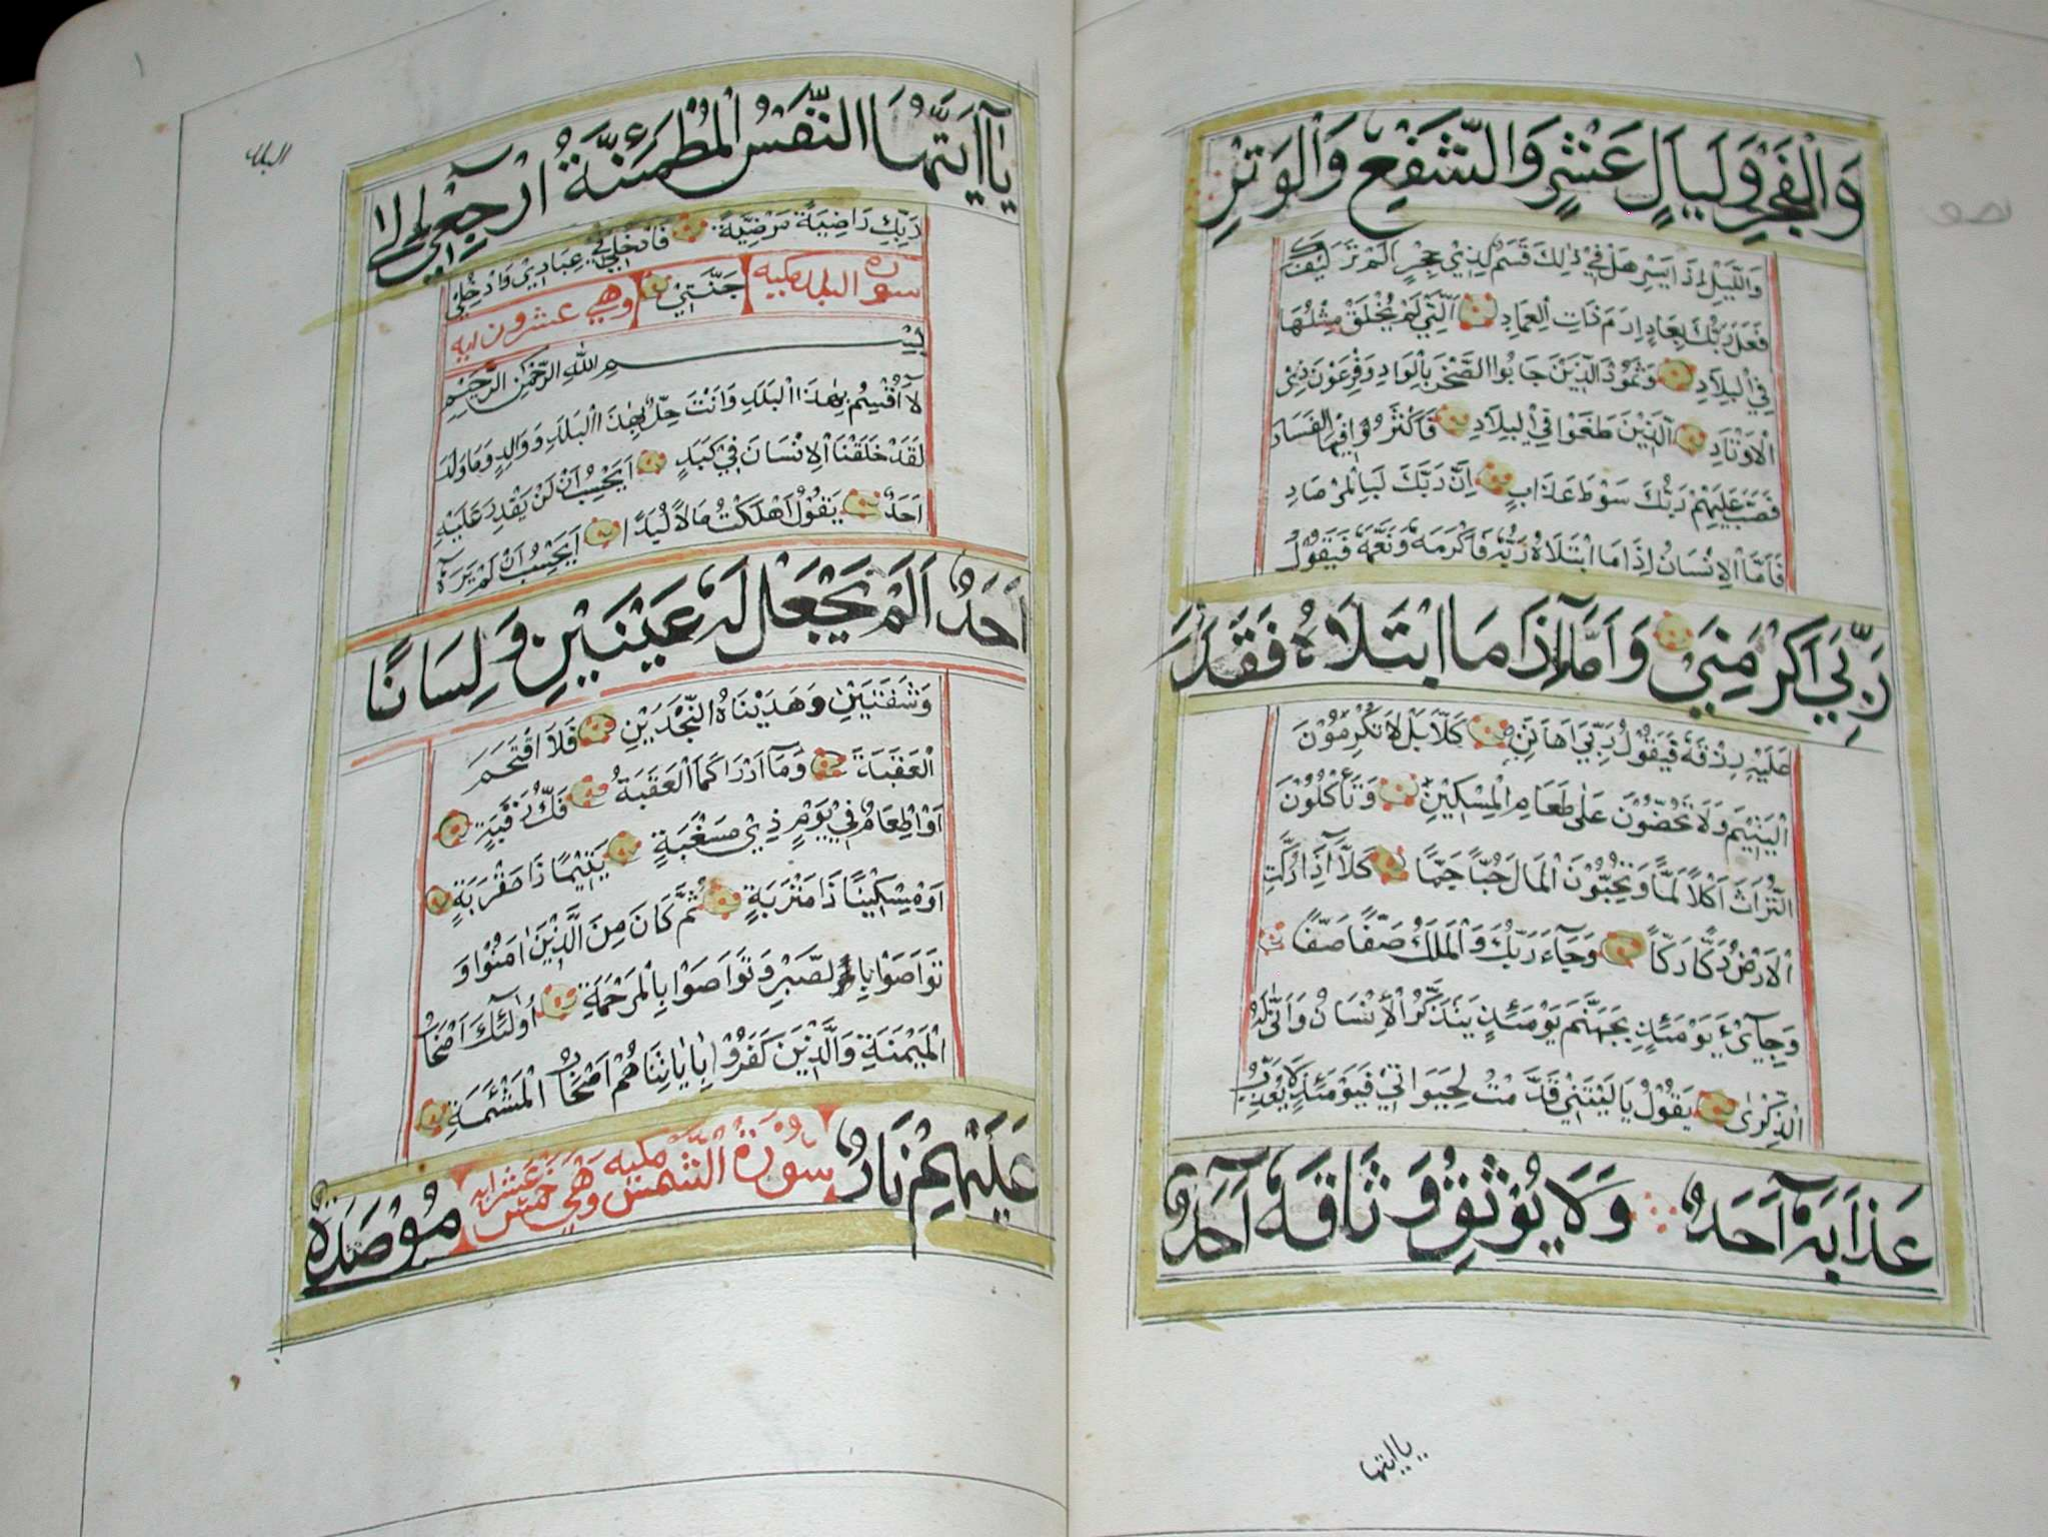 وَالْفَجْرِ وَلَيَالٍ عَشْرٍ وَالشَّفْعِ وَالْوَتْرِ
وَاللَّيْلِ اِذَا يَسْرِ هَلْ فِي ذٰلِكَ قَسَمٌ لِذِي حِجْرٍ اَلَمْ تَرَ كَيْفَ
فَعَلَ رَبُّكَ بِعَادٍ اِرَمَ ذَاتِ الْعِمَادِ اَلَّتِي لَمْ يُخْلَقْ مِثْلُهَا
فِي الْبِلَادِ وَثَمُودَ الَّذِينَ جَابُوا الصَّخْرَ بِالْوَادِ وَفِرْعَوْنَ ذِي
الْاَوْتَادِ اَلَّذِينَ طَغَوْا فِي الْبِلَادِ فَاَكْثَرُوا فِيهَا الْفَسَادَ
فَصَبَّ عَلَيْهِمْ رَبُّكَ سَوْطَ عَذَابٍ اِنَّ رَبَّكَ لَبِالْمِرْصَادِ
فَاَمَّا الْاِنْسَانُ اِذَا مَا ابْتَلَاهُ رَبُّهُ فَاَكْرَمَهُ وَنَعَّمَهُ فَيَقُولُ
رَبِّي اَكْرَمَنِي وَاَمَّا اِذَا مَا ابْتَلَاهُ فَقَدَرَ
عَلَيْهِ رِزْقَهُ فَيَقُولُ رَبِّي اَهَانَنِ كَلَّا بَلْ لَا تُكْرِمُونَ
الْيَتِيمَ وَلَا تَحُضُّونَ عَلٰى طَعَامِ الْمِسْكِينِ وَتَأْكُلُونَ
التُّرَاثَ اَكْلًا لَمًّا وَتُحِبُّونَ الْمَالَ حُبًّا جَمًّا كَلَّا اِذَا دُكَّتِ
الْاَرْضُ دَكًّا دَكًّا وَجَاءَ رَبُّكَ وَالْمَلَكُ صَفًّا صَفًّا
وَجِايْءَ يَوْمَئِذٍ بِجَهَنَّمَ يَوْمَئِذٍ يَتَذَكَّرُ الْاِنْسَانُ وَاَنّٰى لَهُ
الذِّكْرٰى يَقُولُ يَا لَيْتَنِي قَدَّمْتُ لِحَيٰوتِي فَيَوْمَئِذٍ لَا يُعَذِّبُ
عَذَابَهُ اَحَدٌ وَلَا يُوثِقُ وَثَاقَهُ اَحَدٌ
يا ايتها
يَا اَيَّتُهَا النَّفْسُ الْمُطْمَئِنَّةُ ارْجِعِي اِلٰى
رَبِّكِ رَاضِيَةً مَرْضِيَّةً فَادْخُلِي فِي عِبَادِي وَادْخُلِي
سورة البلد مكية جَنَّتِي وهي عشرون اية
بِسْمِ اللهِ الرَّحْمٰنِ الرَّحِيمِ
لَا اُقْسِمُ بِهٰذَا الْبَلَدِ وَاَنْتَ حِلٌّ بِهٰذَا الْبَلَدِ وَوَالِدٍ وَمَا وَلَدَ
لَقَدْ خَلَقْنَا الْاِنْسَانَ فِي كَبَدٍ اَيَحْسِبُ اَنْ لَنْ يَقْدِرَ عَلَيْهِ
اَحَدٌ يَقُولُ اَهْلَكْتُ مَالًا لُبَدًا اَيَحْسِبُ اَنْ لَمْ يَرَهُ
اَحَدٌ اَلَمْ نَجْعَلْ لَهُ عَيْنَيْنِ وَلِسَانًا
وَشَفَتَيْنِ وَهَدَيْنَاهُ النَّجْدَيْنِ فَلَا اقْتَحَمَ
الْعَقَبَةَ وَمَا اَدْرَاكَ مَا الْعَقَبَةُ فَكُّ رَقَبَةٍ
اَوْ اِطْعَامٌ فِي يَوْمٍ ذِي مَسْغَبَةٍ يَتِيمًا ذَا مَقْرَبَةٍ
اَوْ مِسْكِينًا ذَا مَتْرَبَةٍ ثُمَّ كَانَ مِنَ الَّذِينَ اٰمَنُوا وَ
تَوَاصَوْا بِالصَّبْرِ وَتَوَاصَوْا بِالْمَرْحَمَةِ اُولٰئِكَ اَصْحَابُ
الْمَيْمَنَةِ وَالَّذِينَ كَفَرُوا بِاٰيَاتِنَا هُمْ اَصْحَابُ الْمَشْئَمَةِ
عَلَيْهِمْ نَارٌ سورة الشمس مكية وهي خمس عشر اية مُوصَدَةٌ